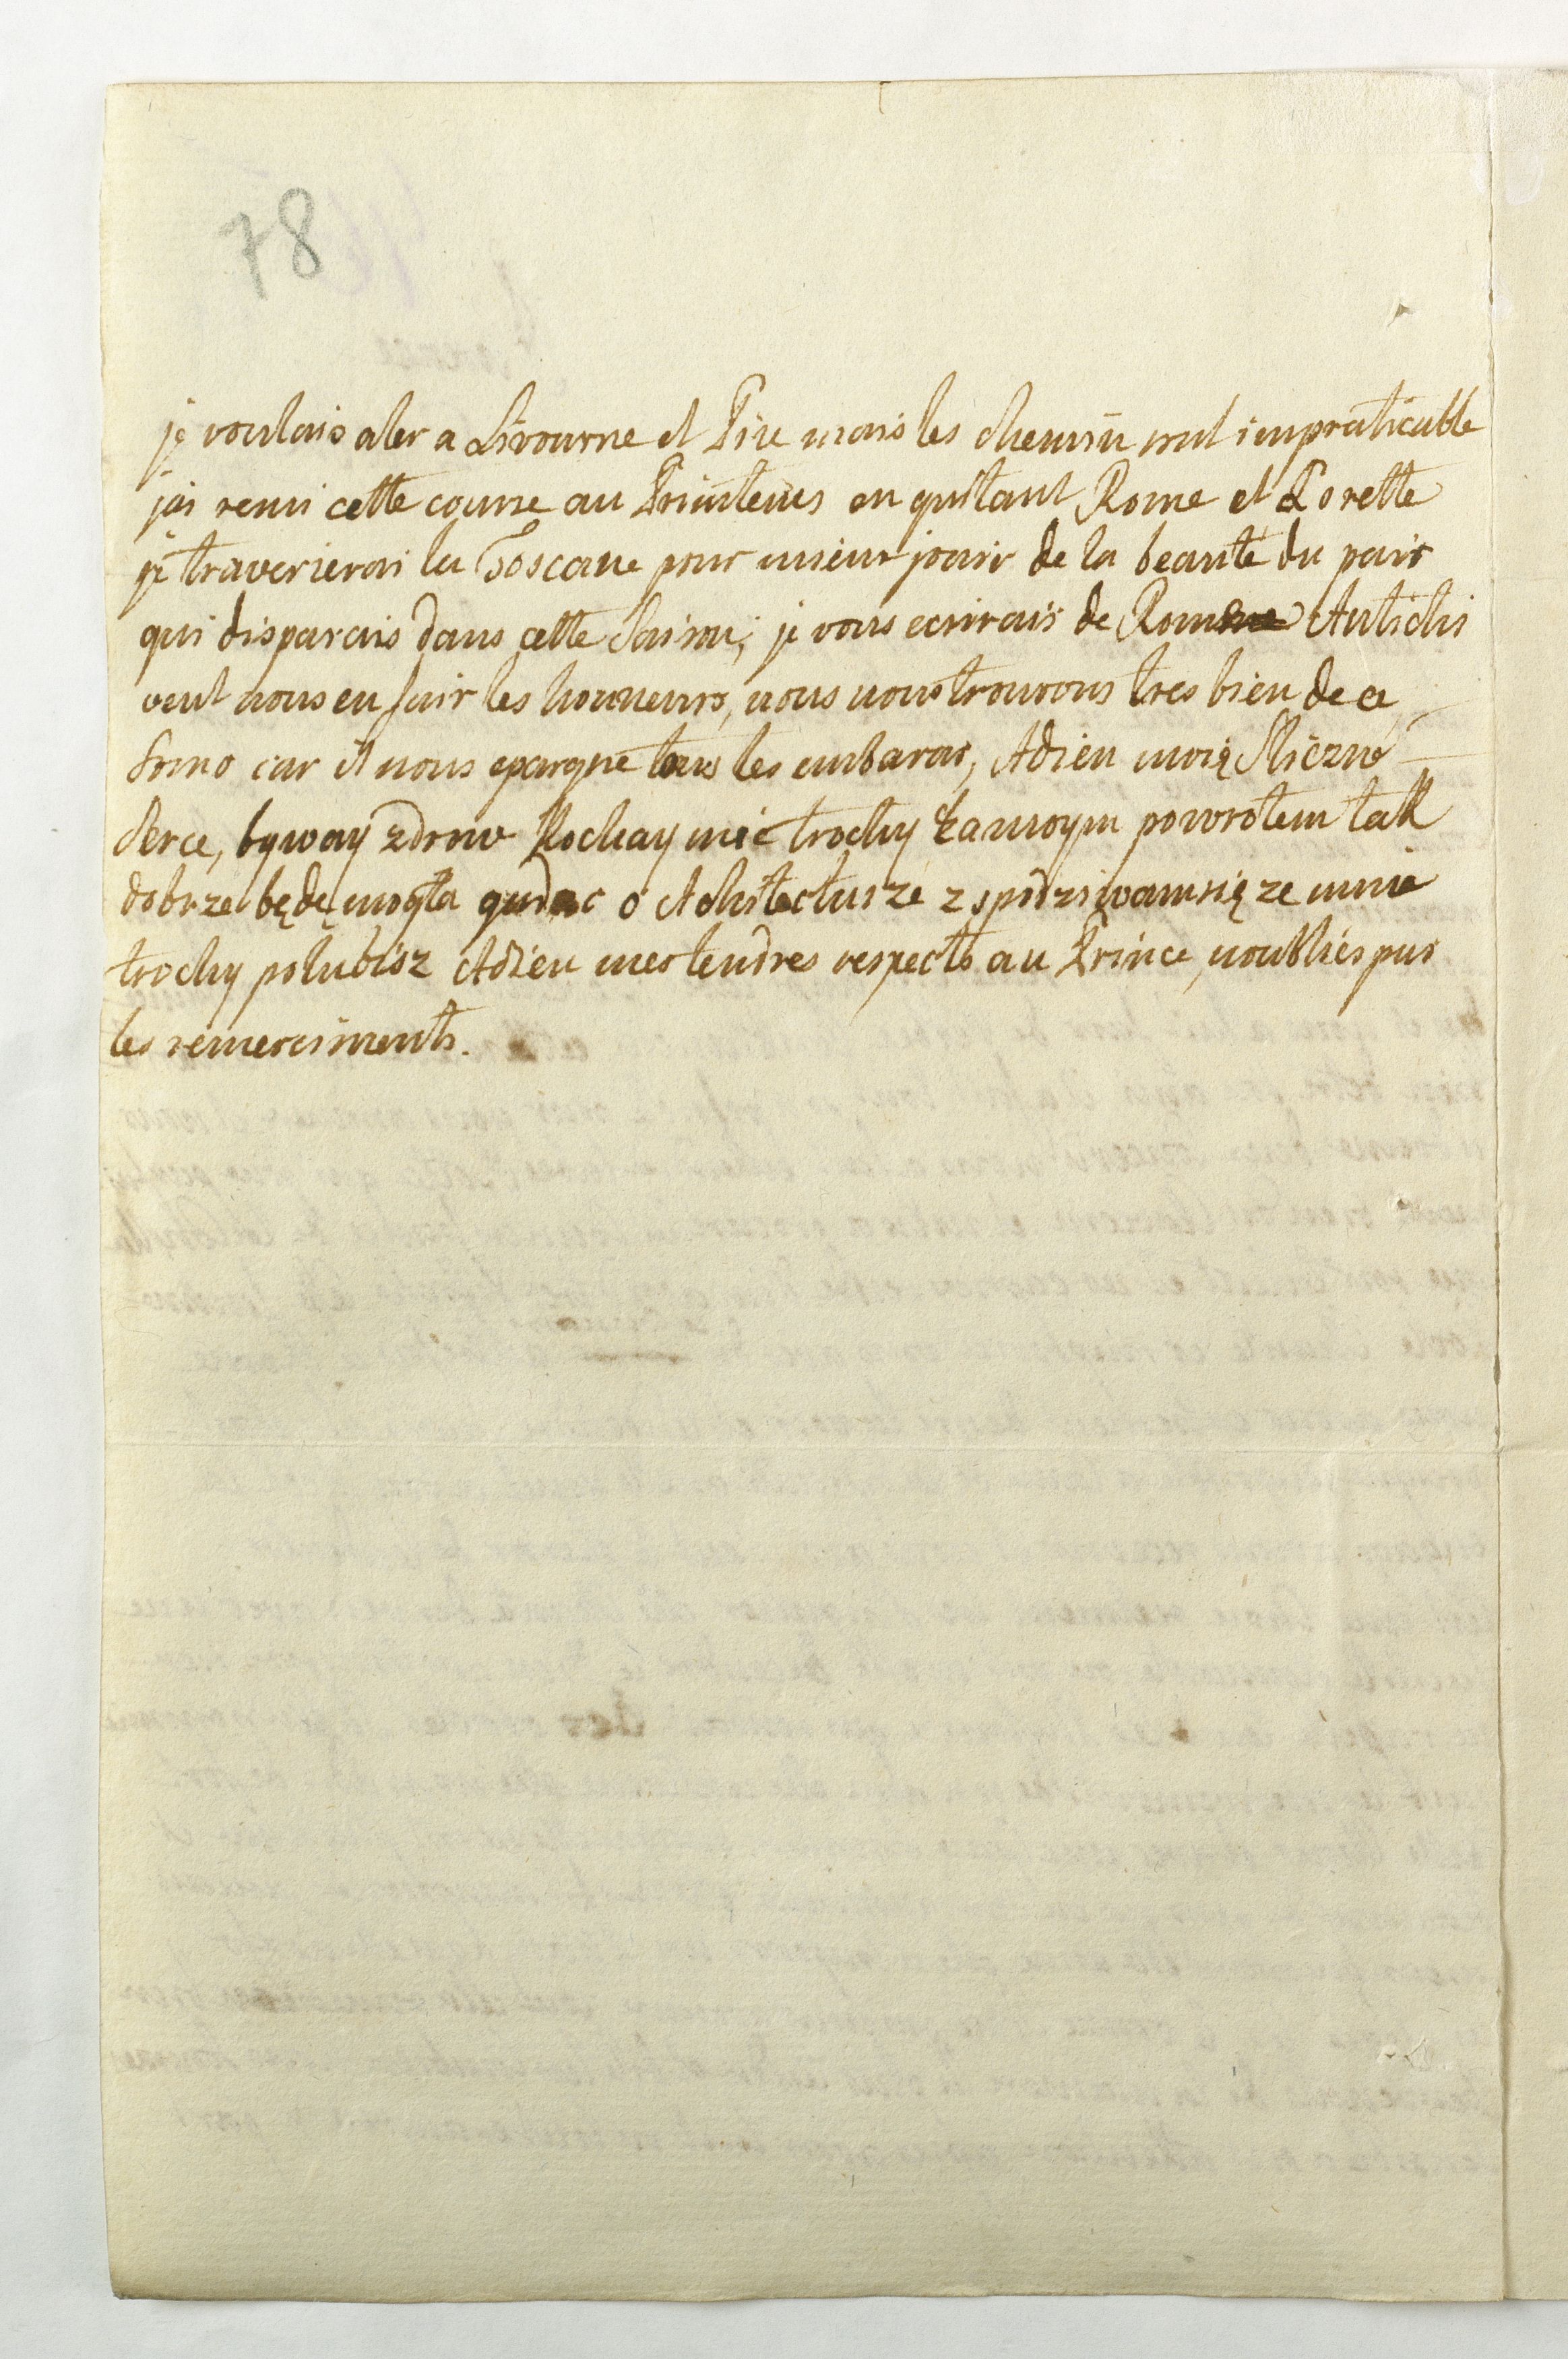 78
je voulais aler a Livourne et Pise mais les chemin sont impraticable
jai remi cette course au Printems en quitant Rome et Lorette
je traverserai la Toscane pour mieux jouir de la beauté du pais
qui disparais dans cette Saison; je vous ecrirais de Rome Antichi
veut nous en fair les honneurs, nous nous trouvons tres bien de ce
Somo car il nous epargne tous les embaras, Adieu moię sliczne
serce, byway zdrowe Kochay mie trochy za moym powrotem tak
dobrze będę mogła gadac o Achitecturze zspodziwam się ze mnie
trochy polubisz Adieu mes tendres respects au Prince, noubliés pas
les remerciments.